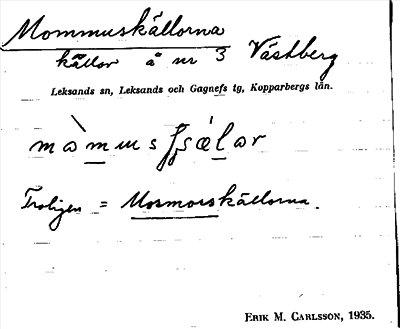 Mommuskällorna
källor å nr 3 Västberg
Leksands sn, Leksands och Gagnefs tg, Kopparbergs län.
Troligen = Mormorskällorna.
ERIK M. CARLSSON, 1935.